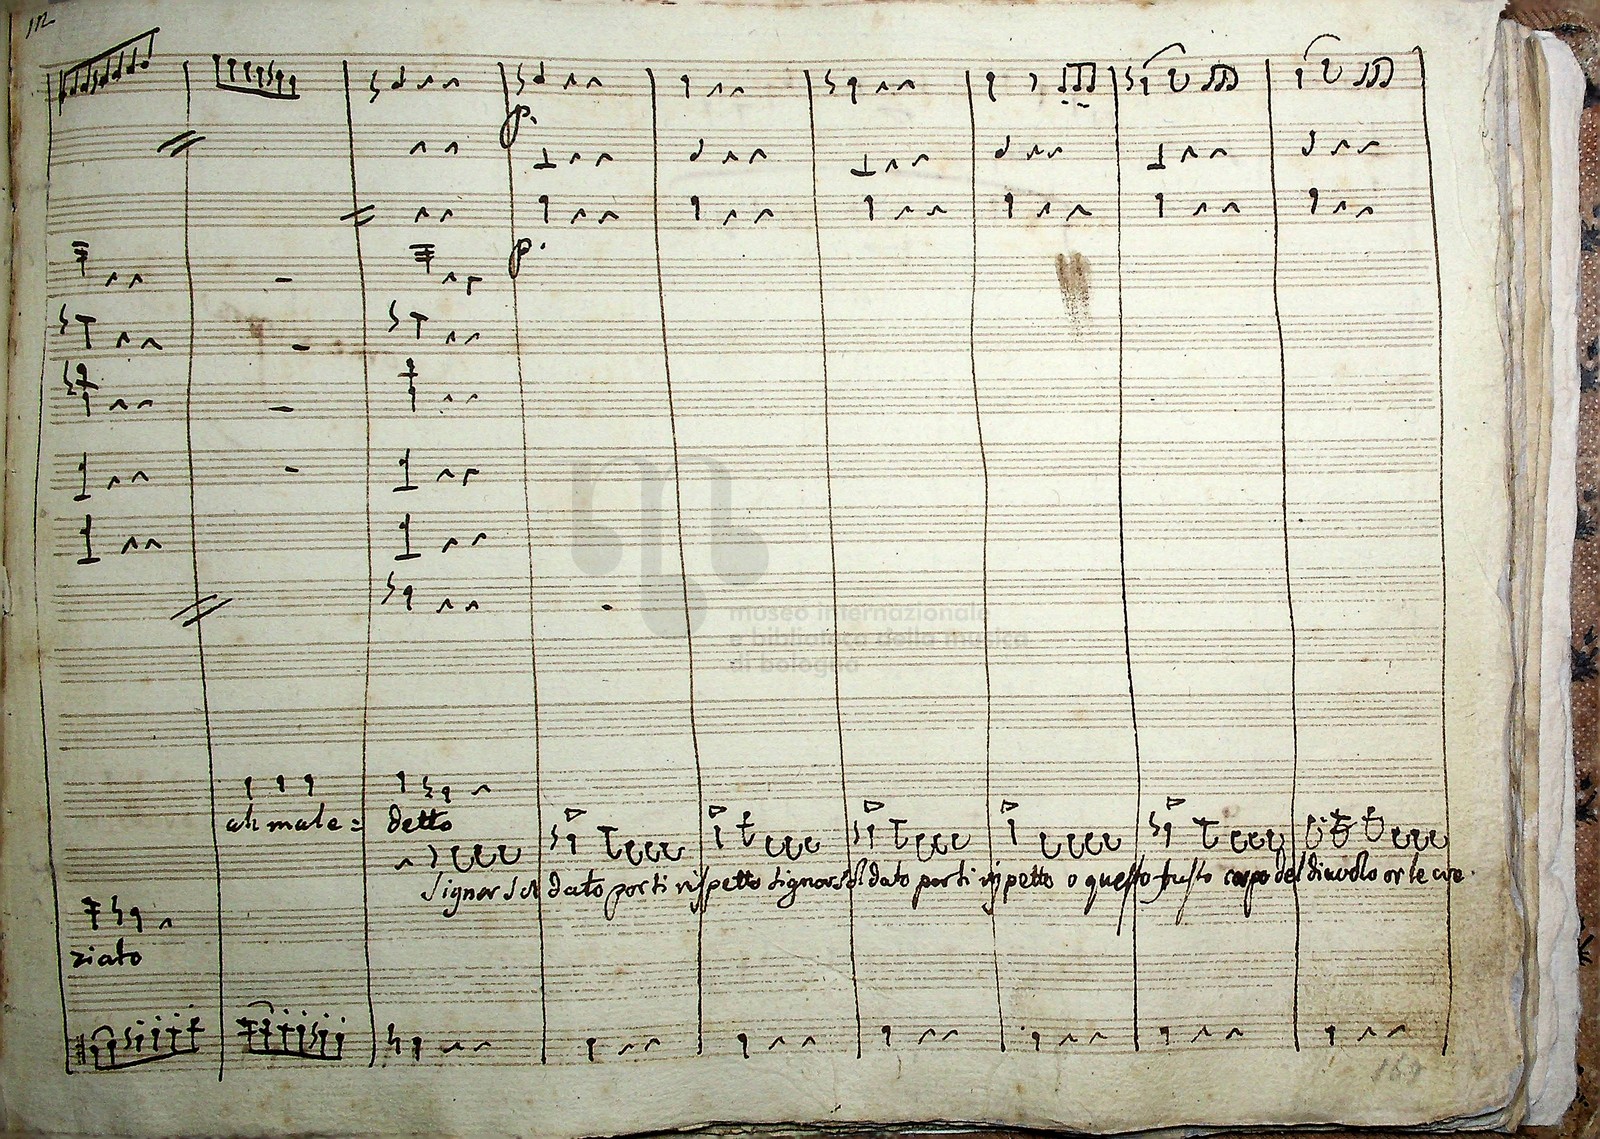 112
p.
p.
museo internazionale
e biblioteca della musica
di bologna
ah male =
detto
Signor Sol dato porti rispetto signor Sol dato porti rispetto o questo fusto corpo del diavolo or le
ziato